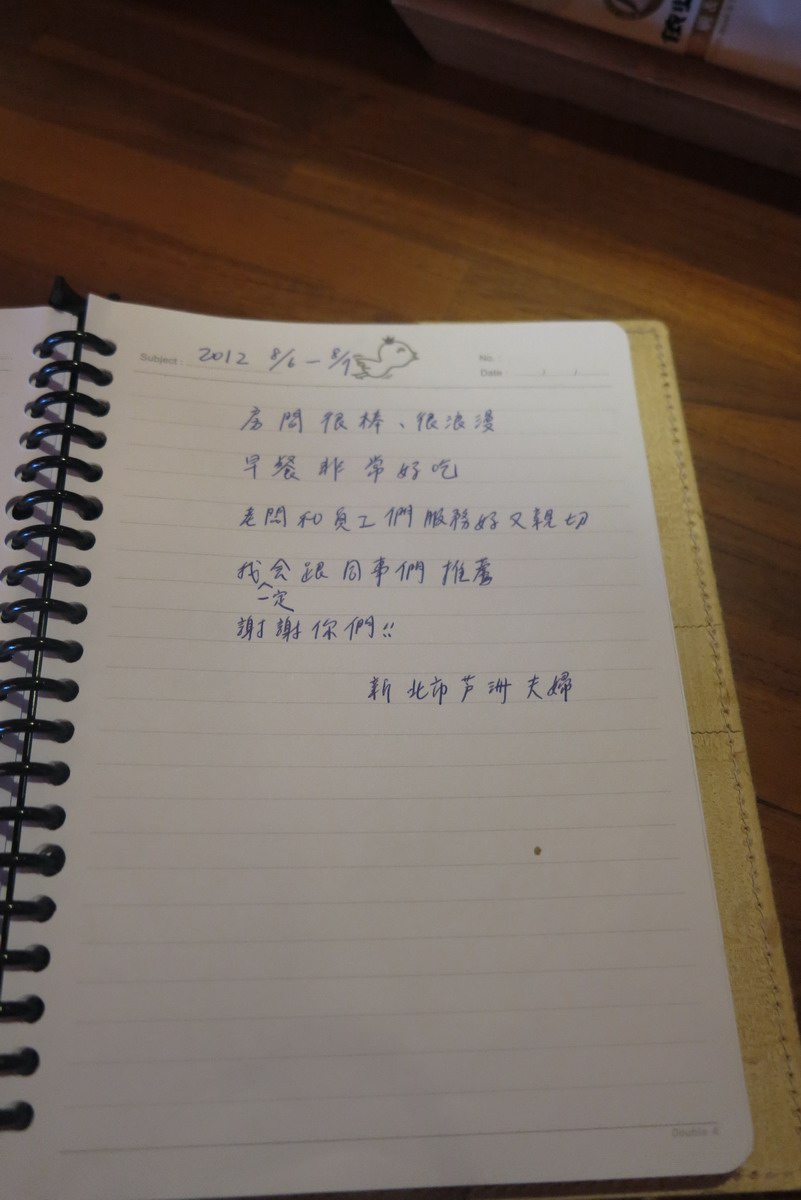 Subject : 2012 8/6 — 8/7
No. :
Date : / /
房間很棒、很浪漫
早餐非常好吃
老闆和員工們服務好又親切
我一定会跟同事們推薦
謝謝你們!!
新北市芦洲夫婦
Double A